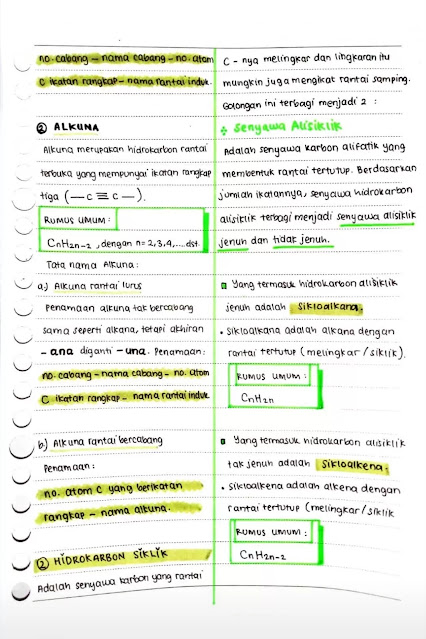 no. cabang - nama cabang - no. atom
C ikatan rangkap - nama rantai induk.
② ALKUNA
Alkuna merupakan hidrokarbon rantai
terbuka yang mempunyai ikatan rangkap
tiga (—C≡C—).
RUMUS UMUM :
CnH2n-2, dengan n= 2,3,4,... dst.
Tata nama Alkuna:
a.) Alkuna rantai lurus
Penamaan alkuna tak bercabang
sama seperti alkana, tetapi akhiran
- ana diganti - una. Penamaan:
no. cabang - nama cabang - no. atom
C ikatan rangkap - nama rantai induk
b) Alkuna rantai bercabang
Penamaan :
no. atom C yang berikatan
rangkap - nama alkuna.
② HIDROKARBON SIKLIK
Adalah senyawa karbon yang rantai
C - nya melingkar dan lingkaran itu
mungkin juga mengikat rantai samping.
Golongan ini terbagi menjadi 2 :
Senyawa Alisiklik
Adalah senyawa karbon alifatik yang
membentuk rantai tertutup. Berdasarkan
jumlah ikatannya, senyawa hidrokarbon
alisiklik terbagi menjadi senyawa alisiklik
jenuh dan tidak jenuh.
Yang termasuk hidrokarbon alisiklik
jenuh adalah sikloalkana.
• Sikloalkana adalah alkana dengan
rantai tertutup (melingkar / siklik).
RUMUS UMUM :
CnH2n
Yang termasuk hidrokarbon alisiklik
tak jenuh adalah sikloalkena.
• Sikloalkena adalah alkena dengan
rantai tertutup (melingkar / siklik
RUMUS UMUM :
CnH2n-2